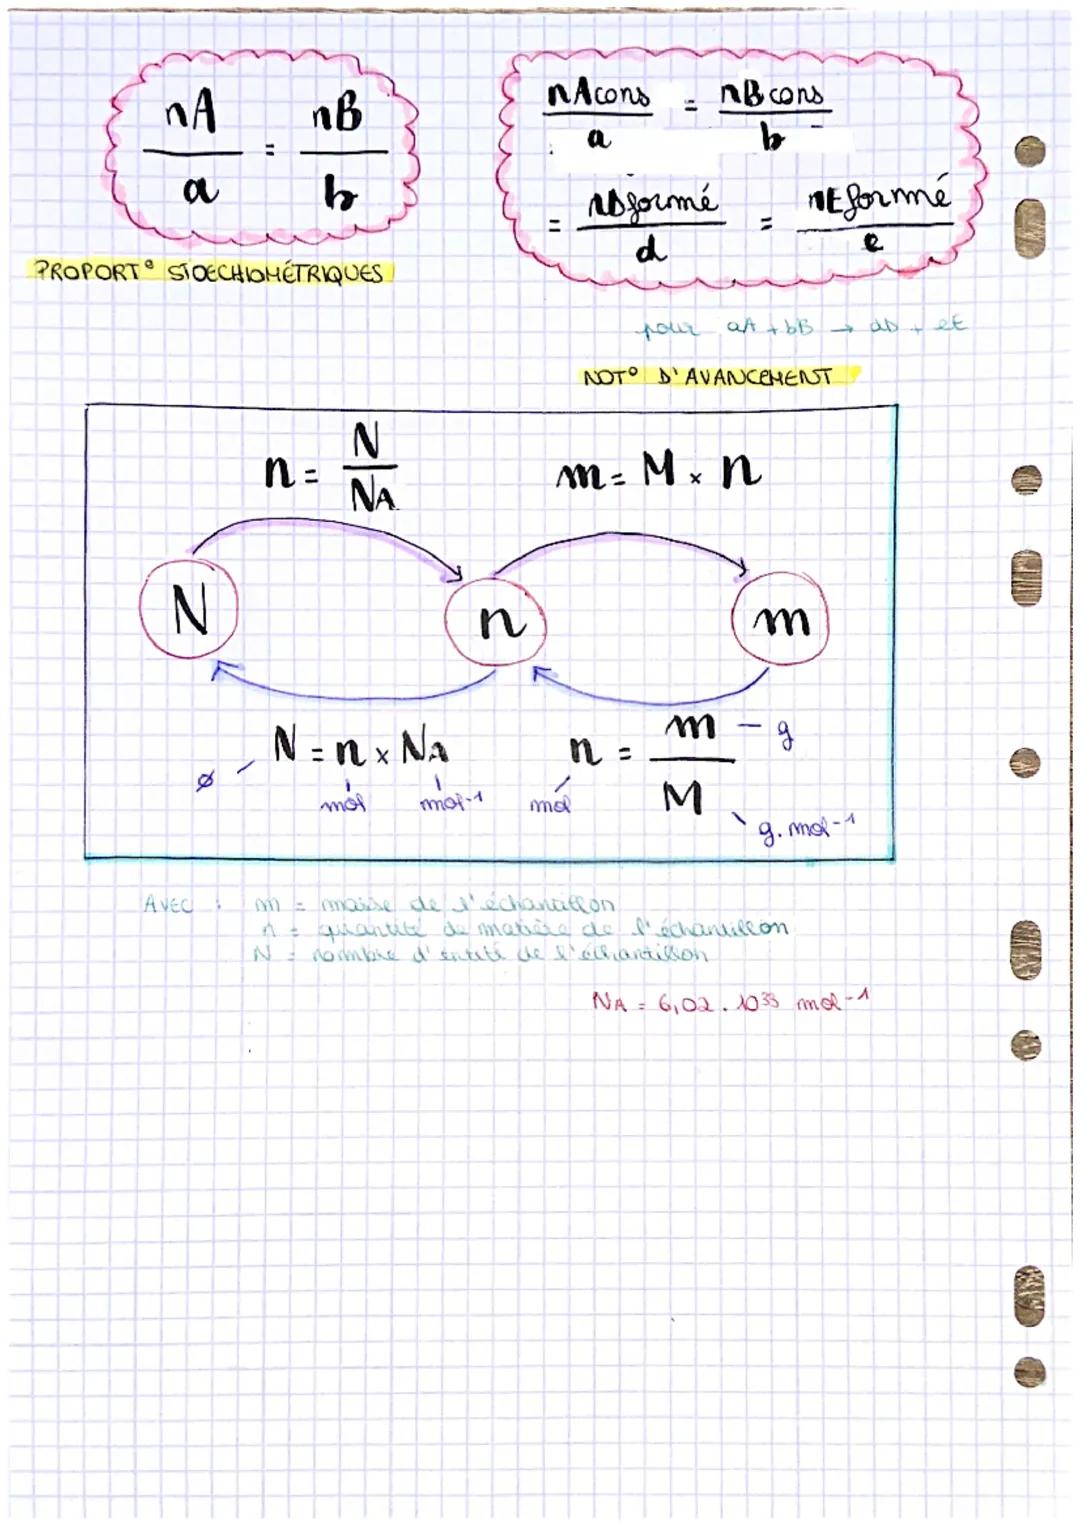 nA/a = nB/b
PROPORT° STOECHIOMÉTRIQUES
nAcons/a = nBcons/b
= nDformé/d = nEformé/e
pour aA + bB → dD + eE
NOT° D'AVANCEMENT
n = N/NA
m = M × n
N
n
m
N = n × NA
ø mol mol-1
n = m/M
mol g g.mol-1
AVEC : m = masse de l'échantillon
n = quantité de matière de l'échantillon
N = nombre d'entité de l'échantillon
NA = 6,02 . 10²³ mol-1